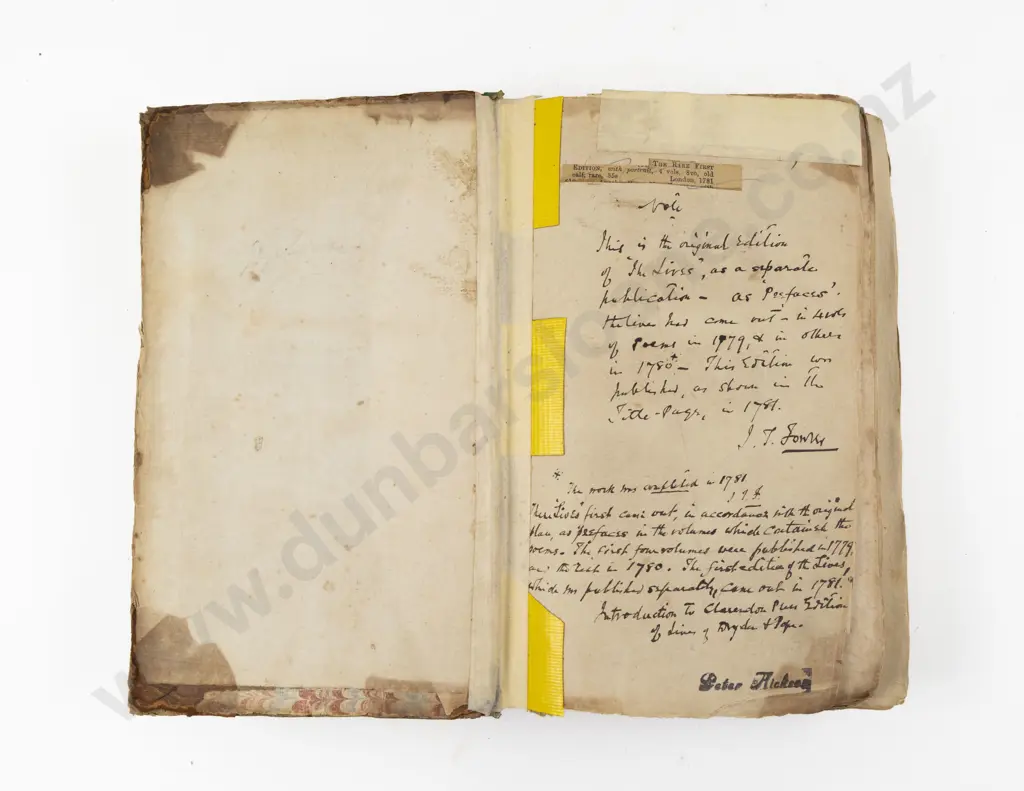 THE RARE FIRST
EDITION, with portrait, 4 vols, 8vo, old
calf, rare, 35s London, 1781
Note
This is the original Edition
of "The Lives", as a separate
publication – as 'Prefaces'.
the lives had come out – in 4 vols
of Poems in 1779, & in others
in 1780+ – This Edition was
published, as shown in the
Title-Page, in 1781.
J. T. Fowler
+ The work was completed in 1781
J. T. F.
These "Lives" first came out, in accordance with the original
plan, as prefaces in the volumes which contained the
poems. The first four volumes were published in 1779,
the rest in 1780. The first edition of the Lives,
which was published separately, came out in 1781."
Introduction to Clarendon Press Edition
of Lives of Dryden & Pope.
Peter
www.dunbarsloane.co.nz